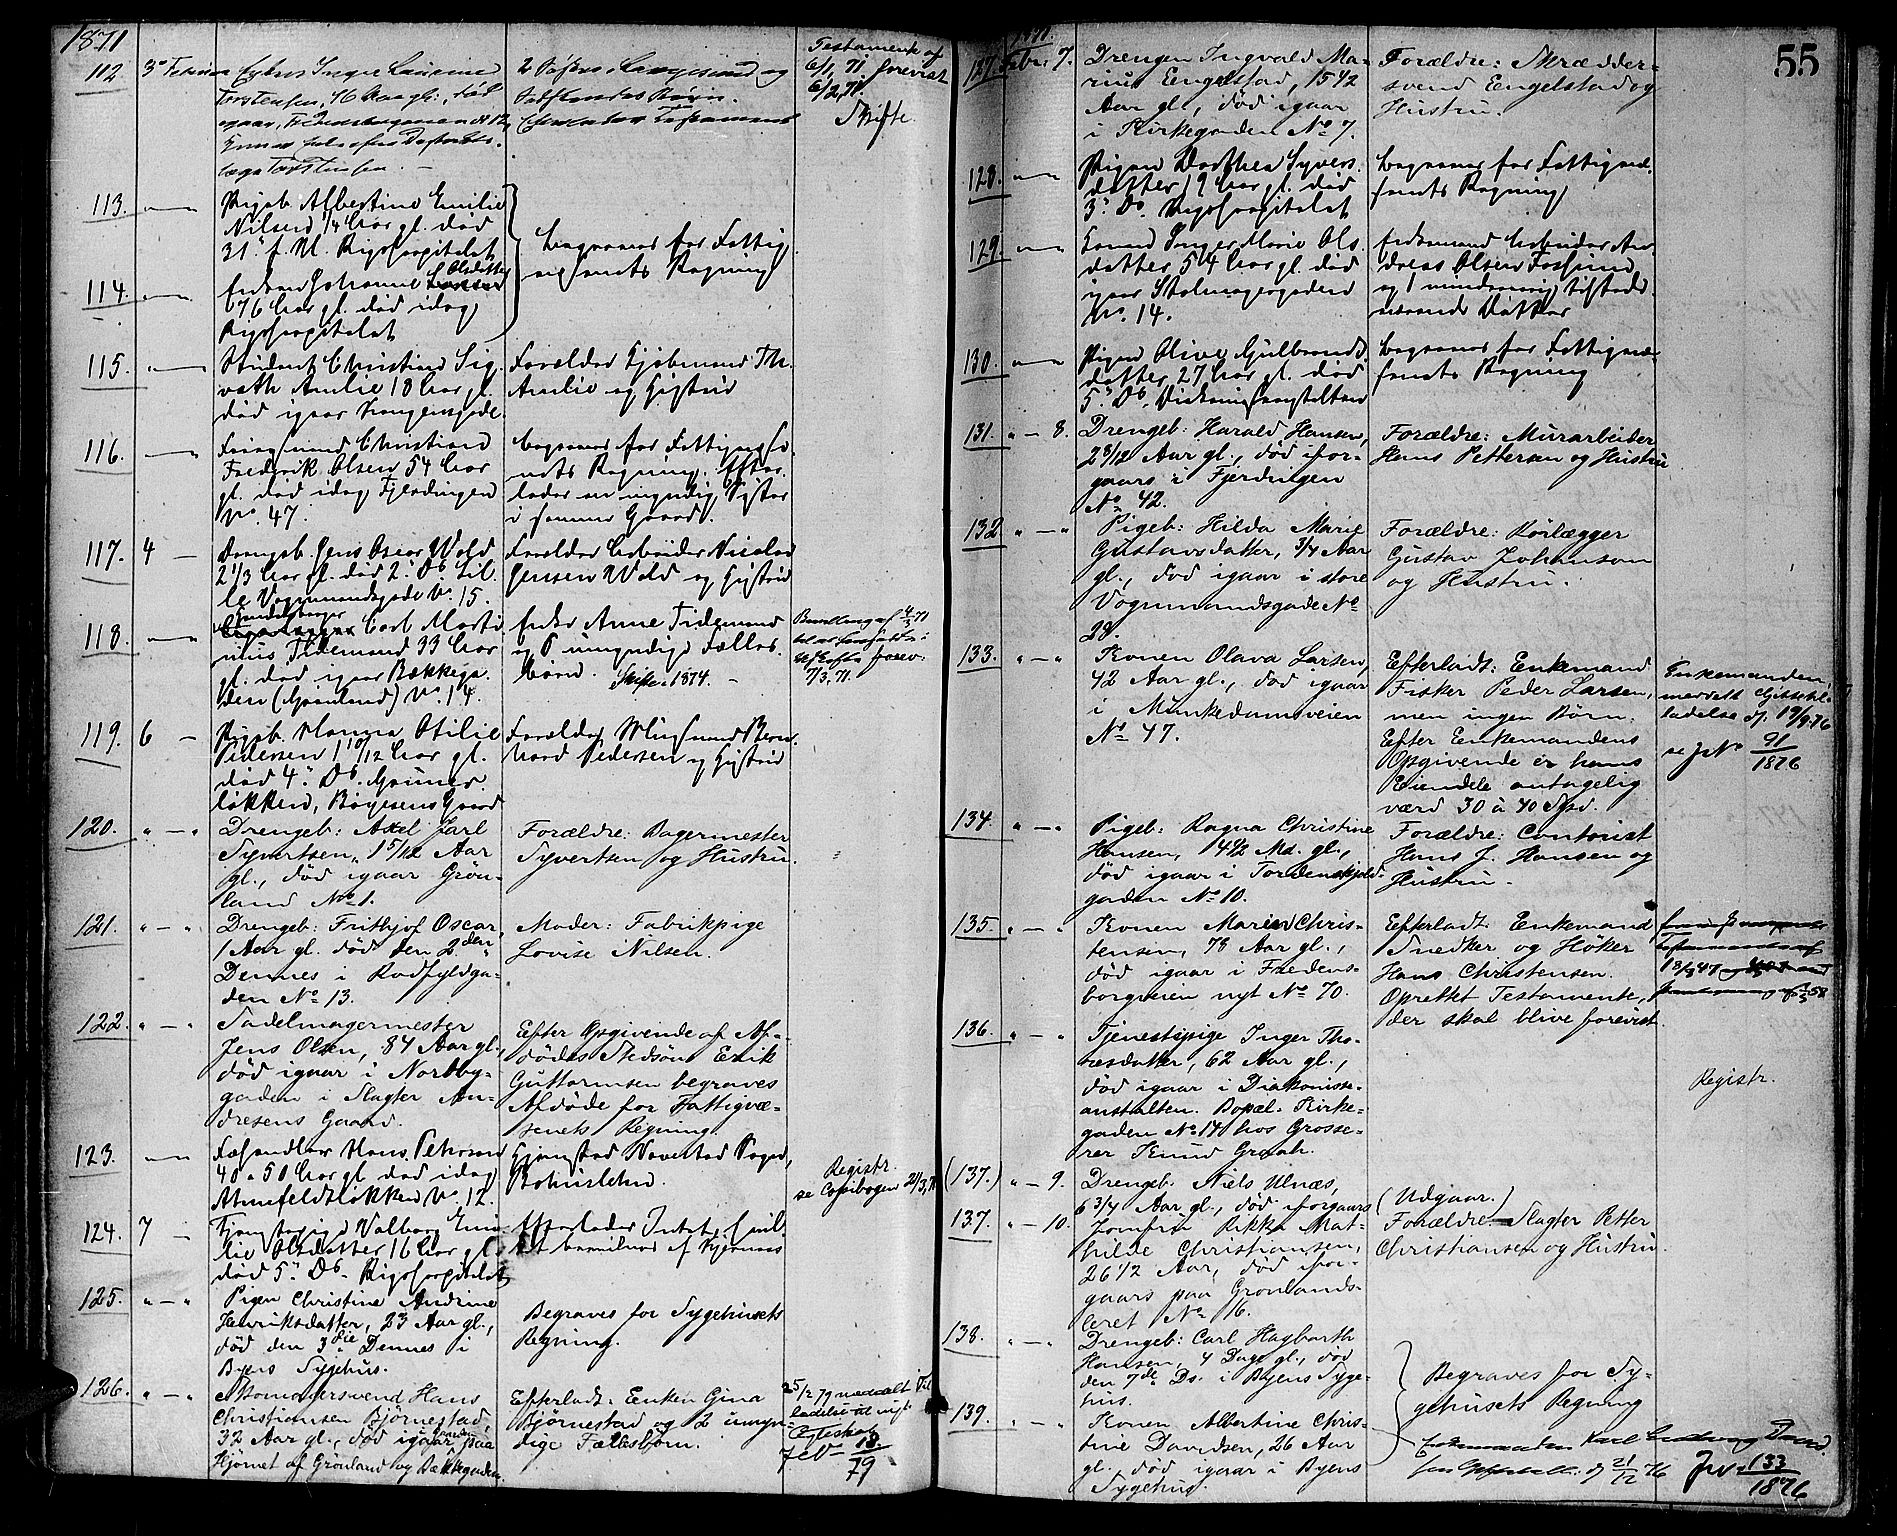 1871
112
Torstensen, 76 Aar gl., død
igaar,
2 Søstre, Langesund og
Testament af
6/1 71 forevist
6/2 71.
Skifte.
113.
Pigeb. Albertine Emilie
Nilsen 1/4 Aar gl. død
31' f. M. Rigshospitalet
begraves for Fattig
væsenets Regning
114.
Enken Johanne Olsdatter
76 Aar gl. død idag
Rigshospitalet
115.
Student Christian Sig-
vath Amlie 18 Aar gl.
død igaar
Forældre Kjøbmand Th.
Amlie og Hustru
116.
Christian
Fredrik Olsen 54 Aar
gl. død idag Fjerdingen
No. 47.
begraves for Fattigvæse-
nets Regning. Efter-
lader en myndig Søster
i samme Gaard.
117. 4 -
Drengb. Jens Oscar Wold
2 1/3 Aar gl. død 2' Ds. Lil-
le Vognmandsgade No. 15.
Forældre Arbeider Nicolai
Jensen Wold og Hustru
118.
Carl Marti
nius Tidemand 33 Aar
gl. død igaar Bækkega-
den (Grønland) No. 14.
Enke Anne Tidemand
og 6 umyndige Fælles-
børn. Skifte 1874. -
Bevilling af 4/3 71
forev.
7/3, 71.
119. 6 -
Pigeb. Hanna Otilie
Pedersen 1 10/12 Aar gl.
død 4' Ds. Grüner-
løkken, Bøgesens Gaard
Forældre Muursvend Bern-
hard Pedersen og Hustru
120. " - "
Drengeb: Axel Jarl
Syvertsen, 1 5/12 Aar
gl., død igaar Grøn-
land No 1.
Forældre: Bagermester
Syvertsen og Hustru.
121. " - "
Drengeb: Frithjof Oscar,
1 Aar gl. død den 2den
Dennes i Rødfyldga-
den No 13.
Moder: Fabrikpige
Lovise Nilsen.
122. " - "
Sadelmagermester
Jens Olsen, 84 Aar gl.,
død igaar i Nordby-
gaden i Slagter An-
dresens Gaard.
Efter Opgivende af Af-
dødes Stedsøn Erik
Guttormsen begraves
Afdøde for Fattigvæ-
senets Regning.
123.
Fæhandler Hans Petersen
40 a 50 Aar gl. død idag
Ahnefeldtsløkken No. 12.
Hjemsted Navestad Sogn,
Bohuslehn.
Registr.
se Copibogen 21/3, 71
124. 7 -
Tjenestepige Valborg Emi-
lie Olsdatter 16 Aar gl.
død 5' Ds. Rigshospitalet
Efterlader Intet,
125. " - "
Pigen Christine Andrine
Henriksdatter, 23 Aar gl.,
død den 3die Dennes i
Byens Sygehus.
Begraves for Sygehusets
Regning.
126. " - "
Skomagersvend Hans
Christiansen Bjørnestad,
32 Aar gl., død igaar paa
Hjørnet af Grønland og Bækkegaden.
Efterladt: Enken Gina
Bjørnestad og 2 umyn-
dige Fællesbørn.
25/2 79 meddelt Til
ladelse til nyt
Ægteskab
JNo 18/79
55
127. Febr. 7.
Drengen Ingvald Ma-
rius Engelstad, 15 1/2
Aar gl., død igaar
i Kirkegaden No 7.
Forældre: Skrædder-
svend Engelstad og
Hustru.
128.
Pigen Dorthea Syvers-
datter 19 Aar gl. død
3' Ds. Rigshospitalet
begraves for Fattigvæ-
senets Regning
129.
Konen Inger Marie Ols-
datter 54 Aar gl. død
igaar Stolmagergaden
No. 14.
Enkemand Arbeider An-
dreas Olsen Fossum
og 1 mindreaarig tilstede-
værende Datter
130.
Pigen Olive Gulbrands-
datter 27 Aar gl. død
5' Ds. Diakonisseanstalten
begraves for Fattigvæ-
senets Regning
131. " - 8.
Drengeb: Harald Hansen,
2 8/12 Aar gl., død ifor-
gaars i Fjerdingen
No 42.
Forældre: Murarbeider
Hans Pettersen og Hustru
132 " - "
Pigeb: Hilda Marie
Gustavsdatter, 3/4 Aar
gl., død igaar i store
Vognmandsgade No
28.
Forældre: Rørlægger
Gustav Johanson
og Hustru.
133. " - "
Konen Olava Larsen,
42 Aar gl., død igaar
i Munkedamsveien
No 47.
Efterladt: Enkemand
Fisker Peder Larsen,
men ingen Børn.
Efter Enkemandens
Opgivende er hans
Eiendele antagelig
værd 30 à 40 Spd.
Enkemanden
meddelt Giftetil-
ladelse d. 19/9.76
se JNo 91/1876
134. " - "
Pigeb: Ragna Christine
Hansen, 4 1/2 Md. gl.,
død igaar i Tordenskjold-
gaden No 10.
Forældre: Contorist
Hans J. Hansen og
Hustru.
135. " - "
Konen Maren Chris-
tensen, 78 Aar gl.,
død igaar i Fredens-
borgveien nyt No 70.
Efterladt Enkemand
Snedker og Høker
Hans Christensen.
Oprettet Testamente,
der skal blive forevist.
136. " - "
Tjenestepige Inger Tho-
resdatter, 62 Aar gl.,
død igaar i Diakonisse-
anstalten. Bopæl: Kirke-
gaden No 14 hos Grosse-
rer Knud Graah.
Registr.
(137.) " - 9.
Drengeb. Niels Ulnæs,
6 3/4 Aar gl., død iforgaars
(Udgaar.)
137. " - 10.
Jomfru Rikka Mat-
hilde Christiansen,
26 1/2 Aar, død ifor-
gaars paa Grønlands-
leret No 16.
Forældre Slagter Petter
Christiansen og Hustru.
138. " - "
Drengeb: Carl Hagbarth
Hansen, 4 Dage gl., død
den 7de Ds. i Byens Syge-
hus.
Begraves for Sy-
gehusets Regning
139. " - "
Konen Albertine Chris-
tine Davidsen, 26 Aar
gl. død igaar i Byens
Sygehus.
Enkemanden Karl Ludvig
21/12 76 JNo 133/1876